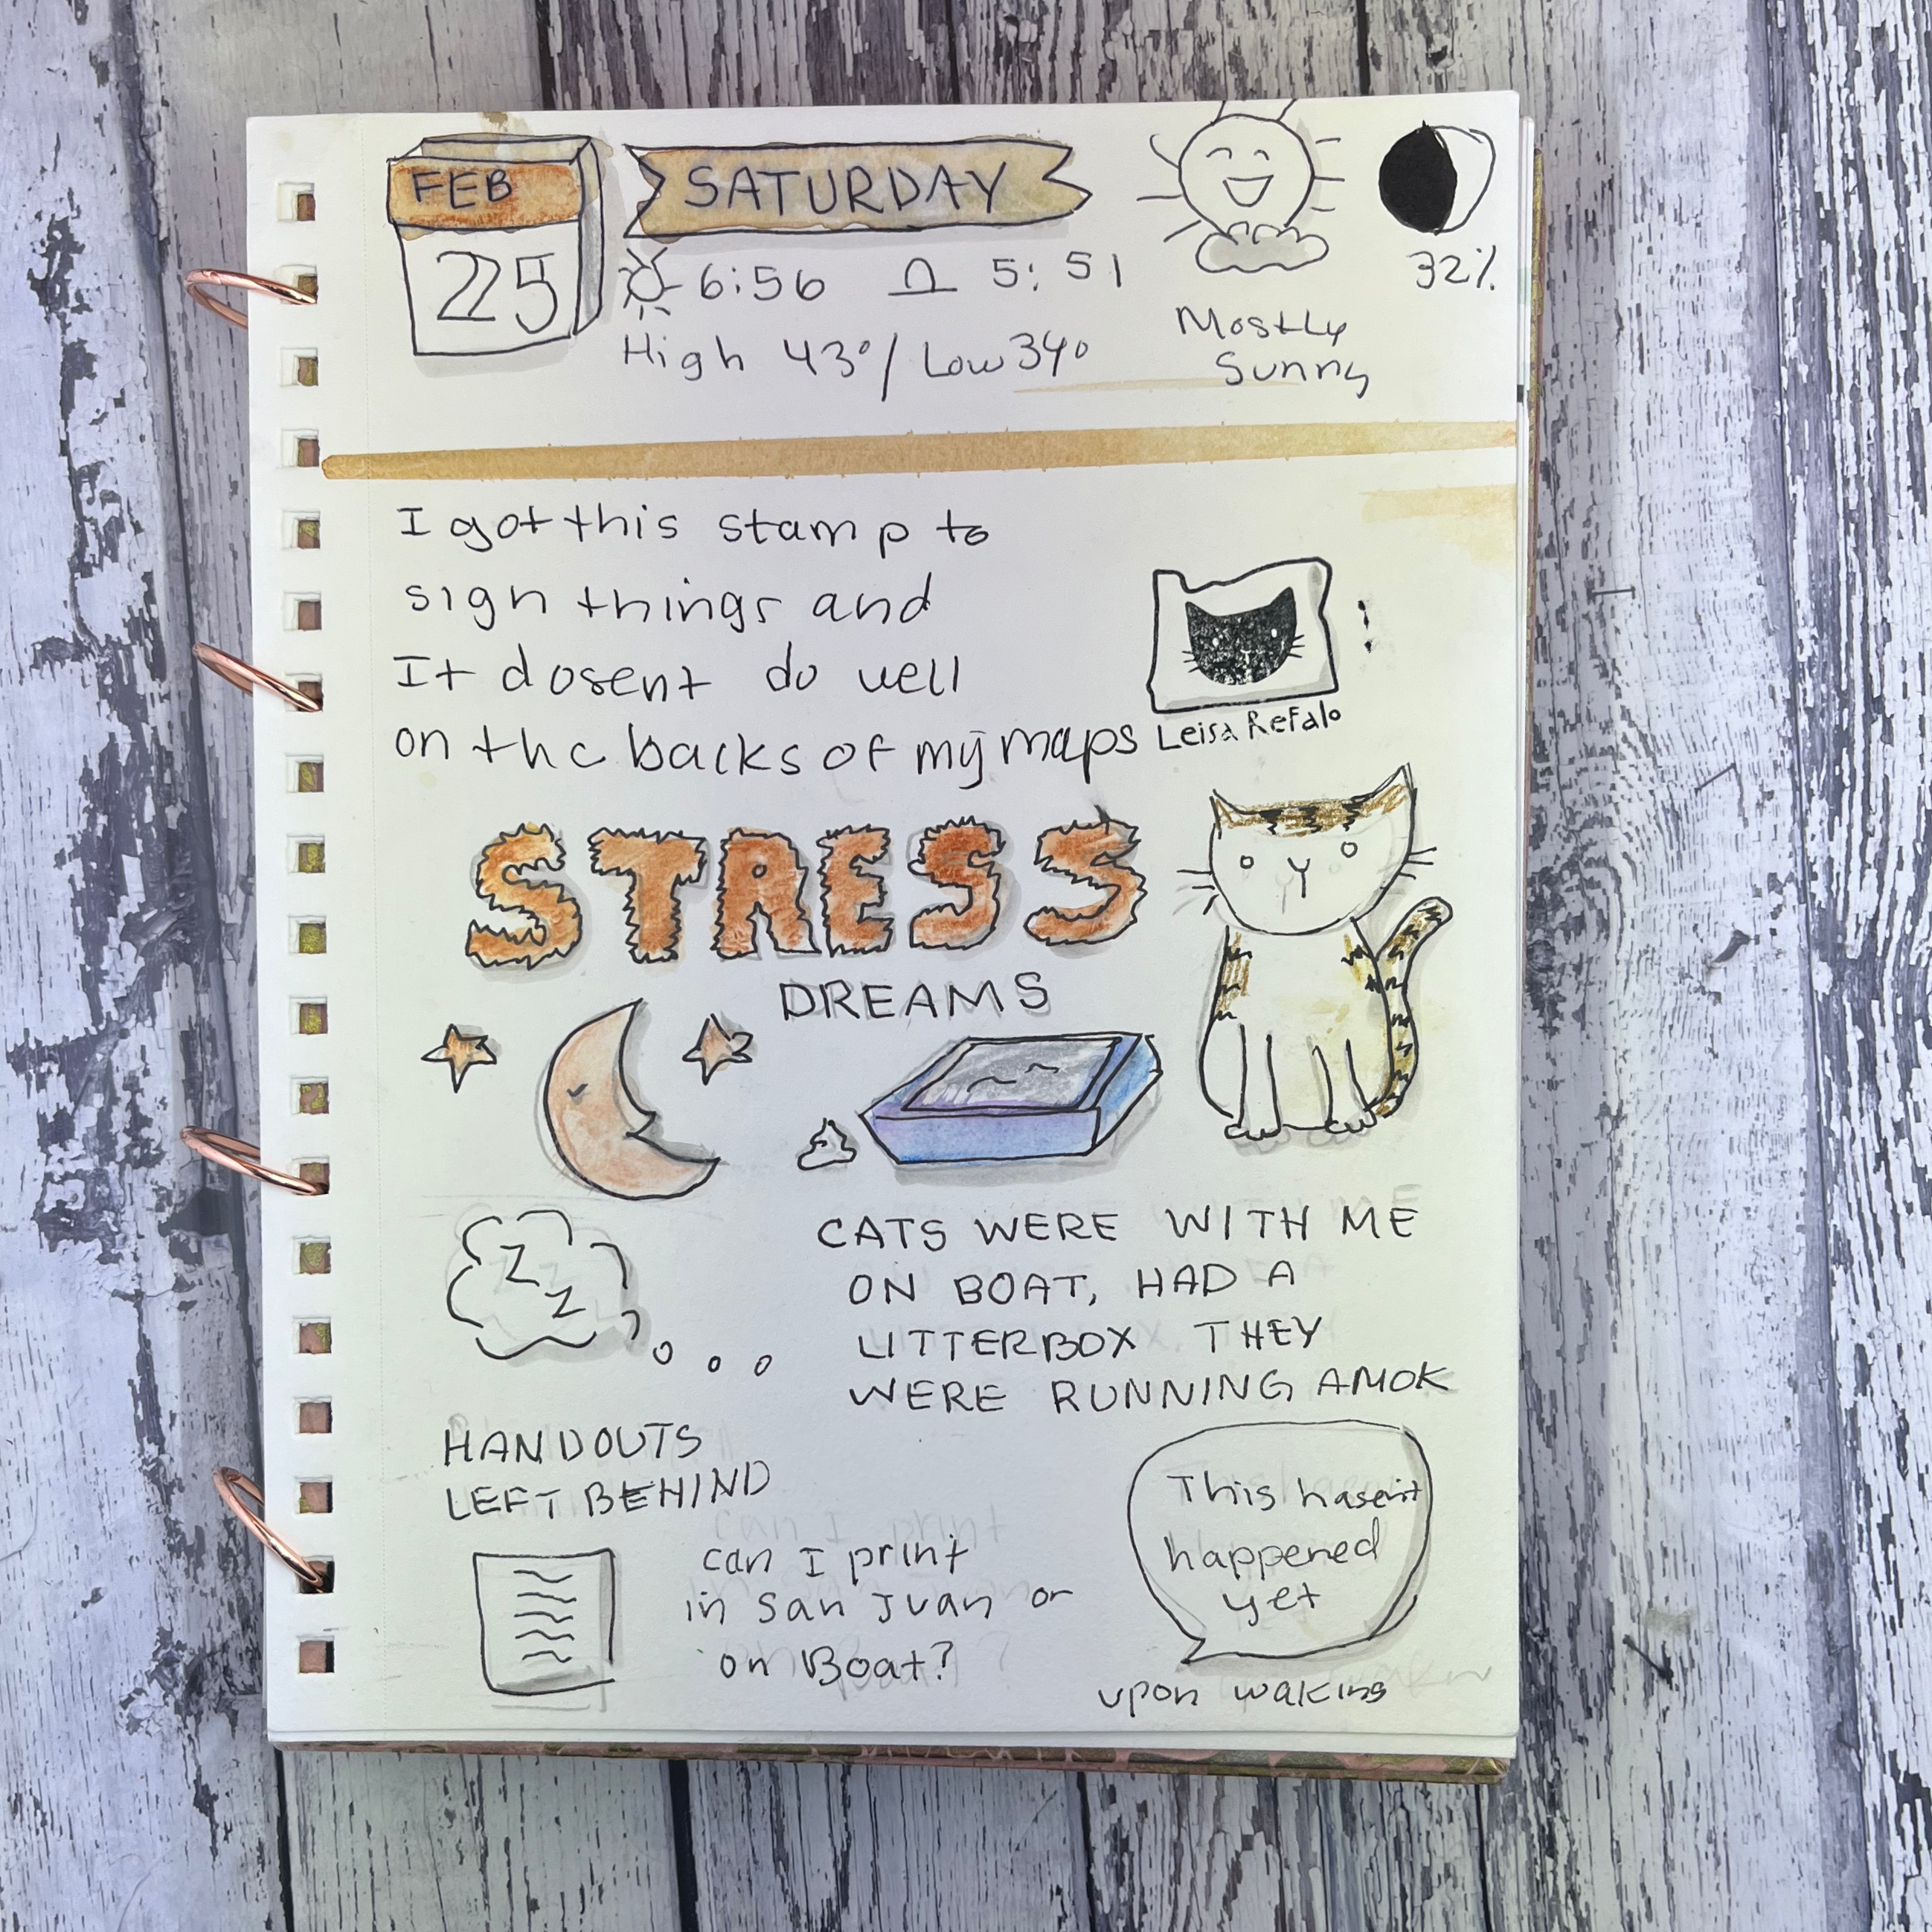 FEB
25
SATURDAY
6:56 5:51
High 43°/Low 34°
Mostly
Sunny
32%
I got this stamp to
sign things and
It dosent do well
on the backs of my maps
Leisa Refalo
STRESS
DREAMS
Z
Z
CATS WERE WITH ME
ON BOAT, HAD A
LITTERBOX THEY
WERE RUNNING AMOK
HANDOUTS
LEFT BEHIND
can I print
in San Juan or
on Boat?
This hasen't
happened
yet
upon waking